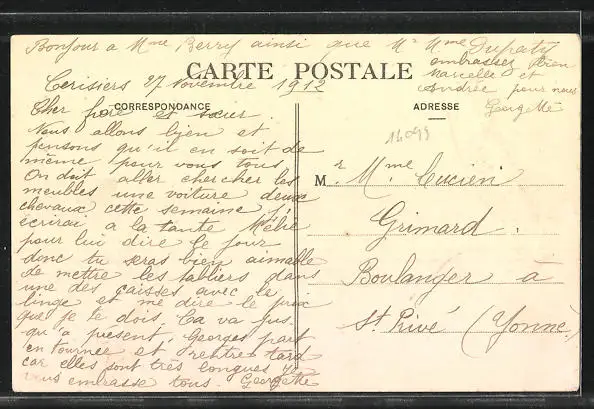 Bonjour a Mme Berry ainsi que Mr Mme Dupaty
embrassez bien
Marcelle et
Andrée pour nous
Georgette
CARTE POSTALE
Cerisiers 27 Novembre 1912
CORRESPONDANCE
ADRESSE
Cher frère et sœur
Nous allons bien et
pensons qu'il en soit de
même pour vous tous
On doit aller chercher les
meubles une voiture deux
chevaux cette semaine j'
écrirai a la tante
pour lui dire le jour
donc tu seras bien aimable
de mettre les tabliers dans
une des caisses avec le
linge et me dire le prix
que je te dois. Ca va jus-
qu'a présent, Georges part
en tournée et rentre tard
car elles sont très longues
vous embrasse tous. Georgette
14099
M. r Mme Lucien
Grimard.
Boulanger à
St Privé (Yonne)